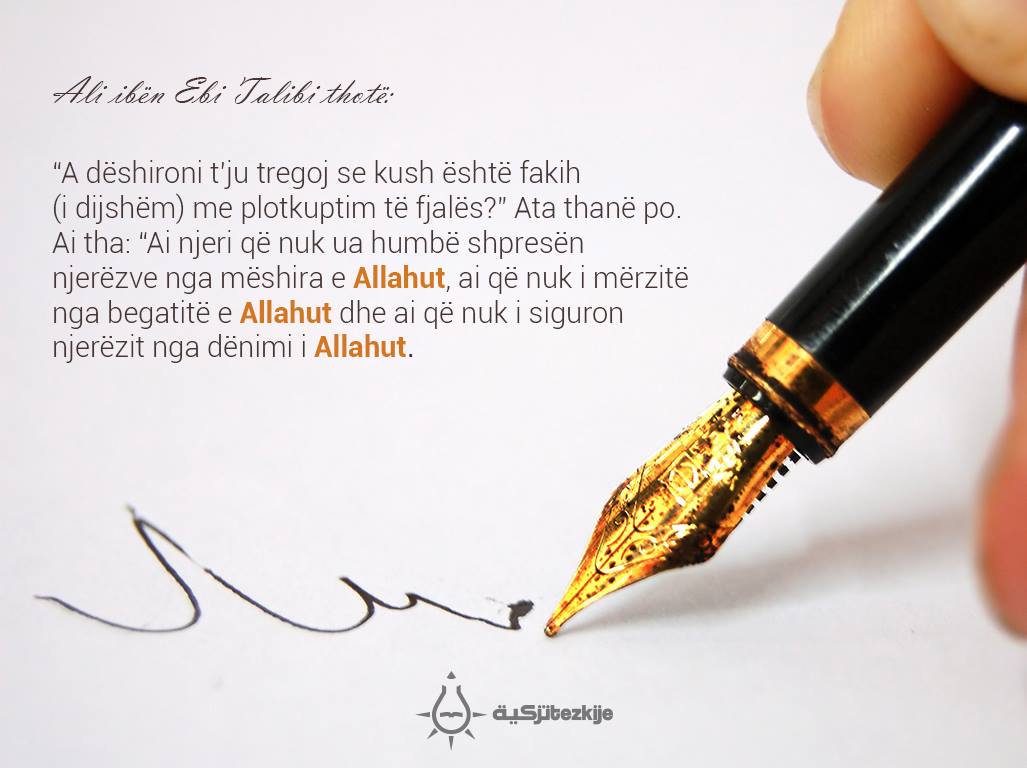 Ali ibën Ebi Talibi thotë:
“A dëshironi t'ju tregoj se kush është fakih
(i dijshëm) me plotkuptim të fjalës?” Ata thanë po.
Ai tha: “Ai njeri që nuk ua humbë shpresën
njerëzve nga mëshira e Allahut, ai që nuk i mërzitë
nga begatitë e Allahut dhe ai që nuk i siguron
njerëzit nga dënimi i Allahut.
تزكية tezkije